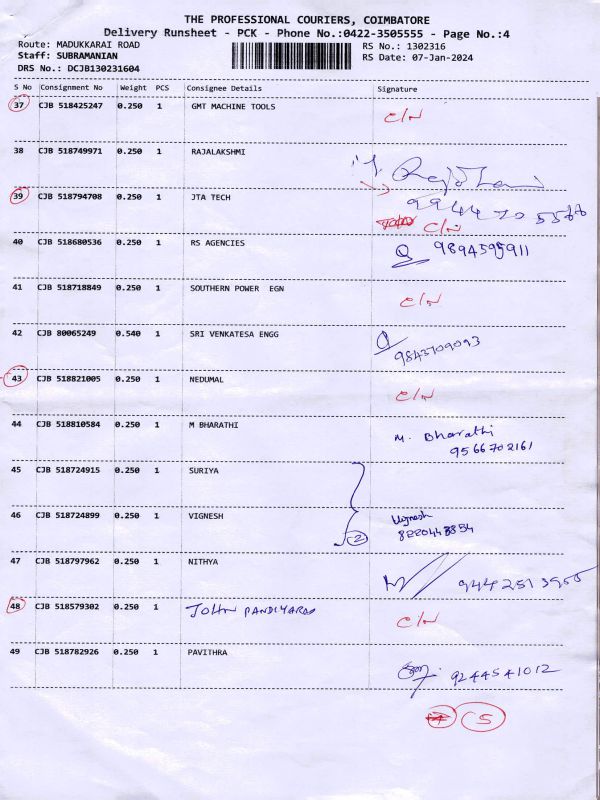 THE PROFESSIONAL COURIERS, COIMBATORE
Delivery Runsheet - PCK - Phone No.:0422-3505555 - Page No.:4
Route: MADUKKARAI ROAD RS No.: 1302316
Staff: SUBRAMANIAN RS Date: 07-Jan-2024
DRS No.: DCJB130231604
S No Consignment No Weight PCS Consignee Details Signature
37 CJB 518425247 0.250 1 GMT MACHINE TOOLS C/N
38 CJB 518749971 0.250 1 RAJALAKSHMI
39 CJB 518794708 0.250 1 JTA TECH C/N
40 CJB 518680536 0.250 1 RS AGENCIES
41 CJB 518718849 0.250 1 SOUTHERN POWER EGN C/N
42 CJB 80065249 0.540 1 SRI VENKATESA ENGG 9843709093
43 CJB 518821005 0.250 1 NEDUMAL C/N
44 CJB 518810584 0.250 1 M BHARATHI M. Bharathi
9566702161
45 CJB 518724915 0.250 1 SURIYA
46 CJB 518724899 0.250 1 VIGNESH Vignesh
2
47 CJB 518797962 0.250 1 NITHYA
48 CJB 518579302 0.250 1 JOHN PANDIYARAJ C/N
49 CJB 518782926 0.250 1 PAVITHRA 9244541012
5